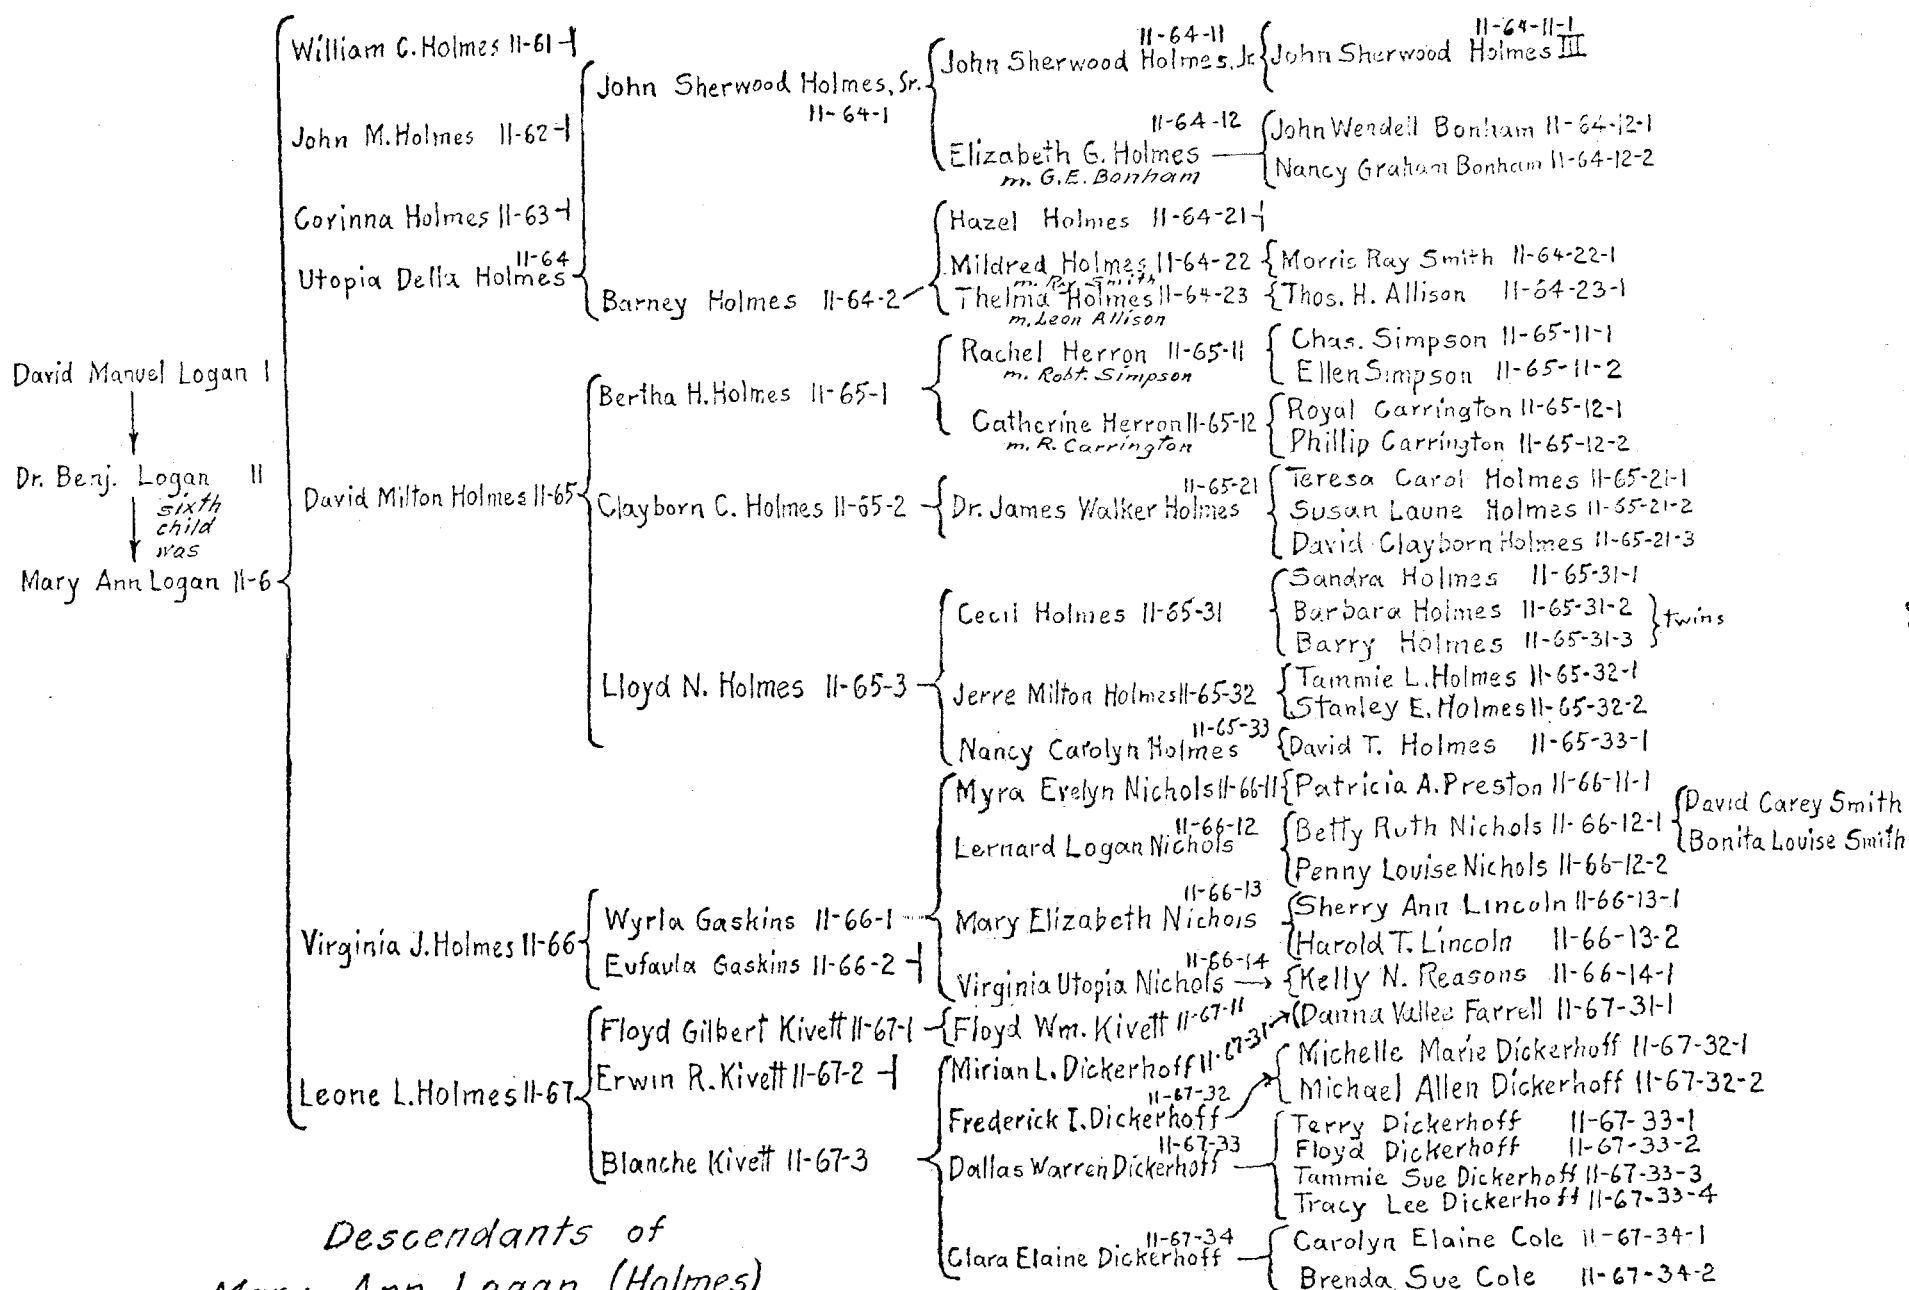 David Manuel Logan 1
Dr. Benj. Logan 11
sixth
child
was
Mary Ann Logan 11-6
William C. Holmes 11-61
John M. Holmes 11-62
Corinna Holmes 11-63
Utopia Della Holmes 11-64
David Milton Holmes 11-65
Virginia J. Holmes 11-66
Leone L. Holmes 11-67
John Sherwood Holmes, Sr.
11-64-1
Barney Holmes 11-64-2
Bertha H. Holmes 11-65-1
Clayborn C. Holmes 11-65-2
Lloyd N. Holmes 11-65-3
Wyrla Gaskins 11-66-1
Eufaula Gaskins 11-66-2
Floyd Gilbert Kivett 11-67-1
Erwin R. Kivett 11-67-2
Blanche Kivett 11-67-3
11-64-11
John Sherwood Holmes, Jr.
11-64-12
Elizabeth G. Holmes
m. G.E. Bonham
Hazel Holmes 11-64-21
Mildred Holmes 11-64-22
m. Ray Smith
Thelma Holmes 11-64-23
m. Leon Allison
Rachel Herron 11-65-11
m. Robt. Simpson
Catherine Herron 11-65-12
m. R. Carrington
11-65-21
Dr. James Walker Holmes
Cecil Holmes 11-65-31
Jerre Milton Holmes 11-65-32
11-65-33
Nancy Carolyn Holmes
Myra Evelyn Nichols 11-66-11
11-66-12
Lernard Logan Nichols
11-66-13
Mary Elizabeth Nichols
11-66-14
Virginia Utopia Nichols
Floyd Wm. Kivett 11-67-11
Mirian L. Dickerhoff 11-67-31
11-67-32
Frederick I. Dickerhoff
11-67-33
Dallas Warren Dickerhoff
11-67-34
Clara Elaine Dickerhoff
11-64-11-1
John Sherwood Holmes III
John Wendell Bonham 11-64-12-1
Nancy Graham Bonham 11-64-12-2
Morris Ray Smith 11-64-22-1
Thos. H. Allison 11-64-23-1
Chas. Simpson 11-65-11-1
Ellen Simpson 11-65-11-2
Royal Carrington 11-65-12-1
Phillip Carrington 11-65-12-2
Teresa Carol Holmes 11-65-21-1
Susan Laune Holmes 11-65-21-2
David Clayborn Holmes 11-65-21-3
Sandra Holmes 11-65-31-1
Barbara Holmes 11-65-31-2
Barry Holmes 11-65-31-3
twins
Tammie L. Holmes 11-65-32-1
Stanley E. Holmes 11-65-32-2
David T. Holmes 11-65-33-1
Patricia A. Preston 11-66-11-1
Betty Ruth Nichols 11-66-12-1
Penny Louise Nichols 11-66-12-2
David Carey Smith
Bonita Louise Smith
Sherry Ann Lincoln 11-66-13-1
Harold T. Lincoln 11-66-13-2
Kelly N. Reasons 11-66-14-1
Danna Vallee Farrell 11-67-31-1
Michelle Marie Dickerhoff 11-67-32-1
Michael Allen Dickerhoff 11-67-32-2
Terry Dickerhoff 11-67-33-1
Floyd Dickerhoff 11-67-33-2
Tammie Sue Dickerhoff 11-67-33-3
Tracy Lee Dickerhoff 11-67-33-4
Carolyn Elaine Cole 11-67-34-1
Brenda Sue Cole 11-67-34-2
Descendants of
Mary Ann Logan (Holmes)